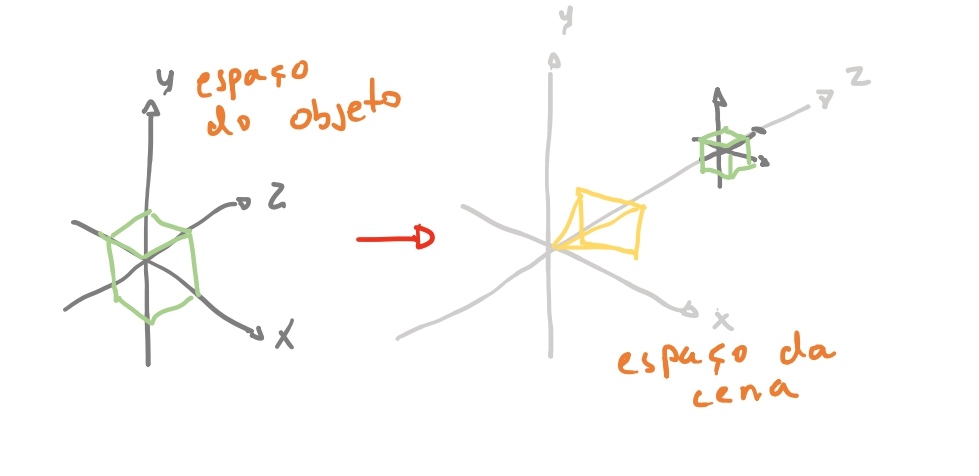 y
espaço
do objeto
z
x
y
z
x
espaço da
cena